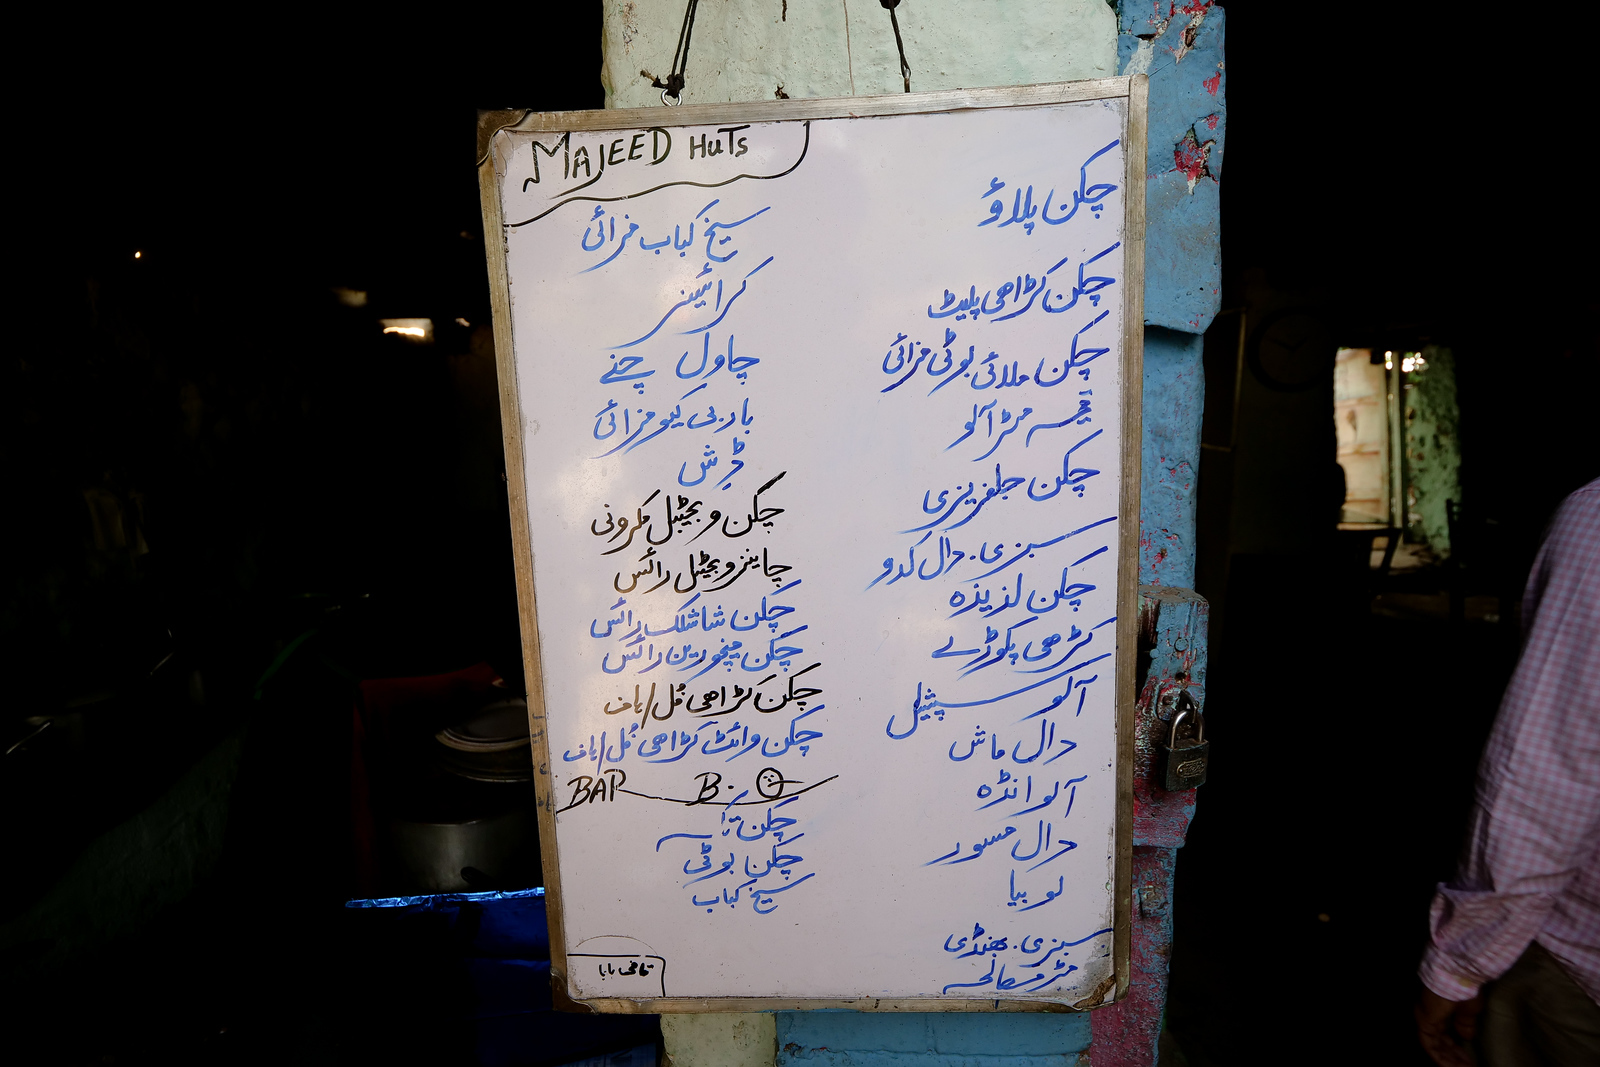 MAJEED HUTS
چکن پلاؤ
چکن کڑاھی پلیٹ
چکن ملائی بوٹی فرائی
قیمہ مٹر آلو
چکن جلفریزی
سبزی۔ دال کدو
چکن لذیذہ
کڑھی پکوڑے
آلو سپیشل
دال ماش
آلو انڈہ
دال مسور
لوبیا
سبزی۔ بھنڈی
مٹر مصالحہ
سیخ کباب فرائی
کرائینر
چاول چنے
بار بی کیو فرائی
ڈش
چکن و بجیٹبل مکرونی
چاینز و بجیٹبل رائس
چکن شاشلک رائس
چکن منچورین رائس
چکن کڑاھی فل/ہاف
چکن وائٹ کڑاھی فل/ہاف
BAR B.
چکن تکہ
چکن بوٹی
سیخ کباب
بابا